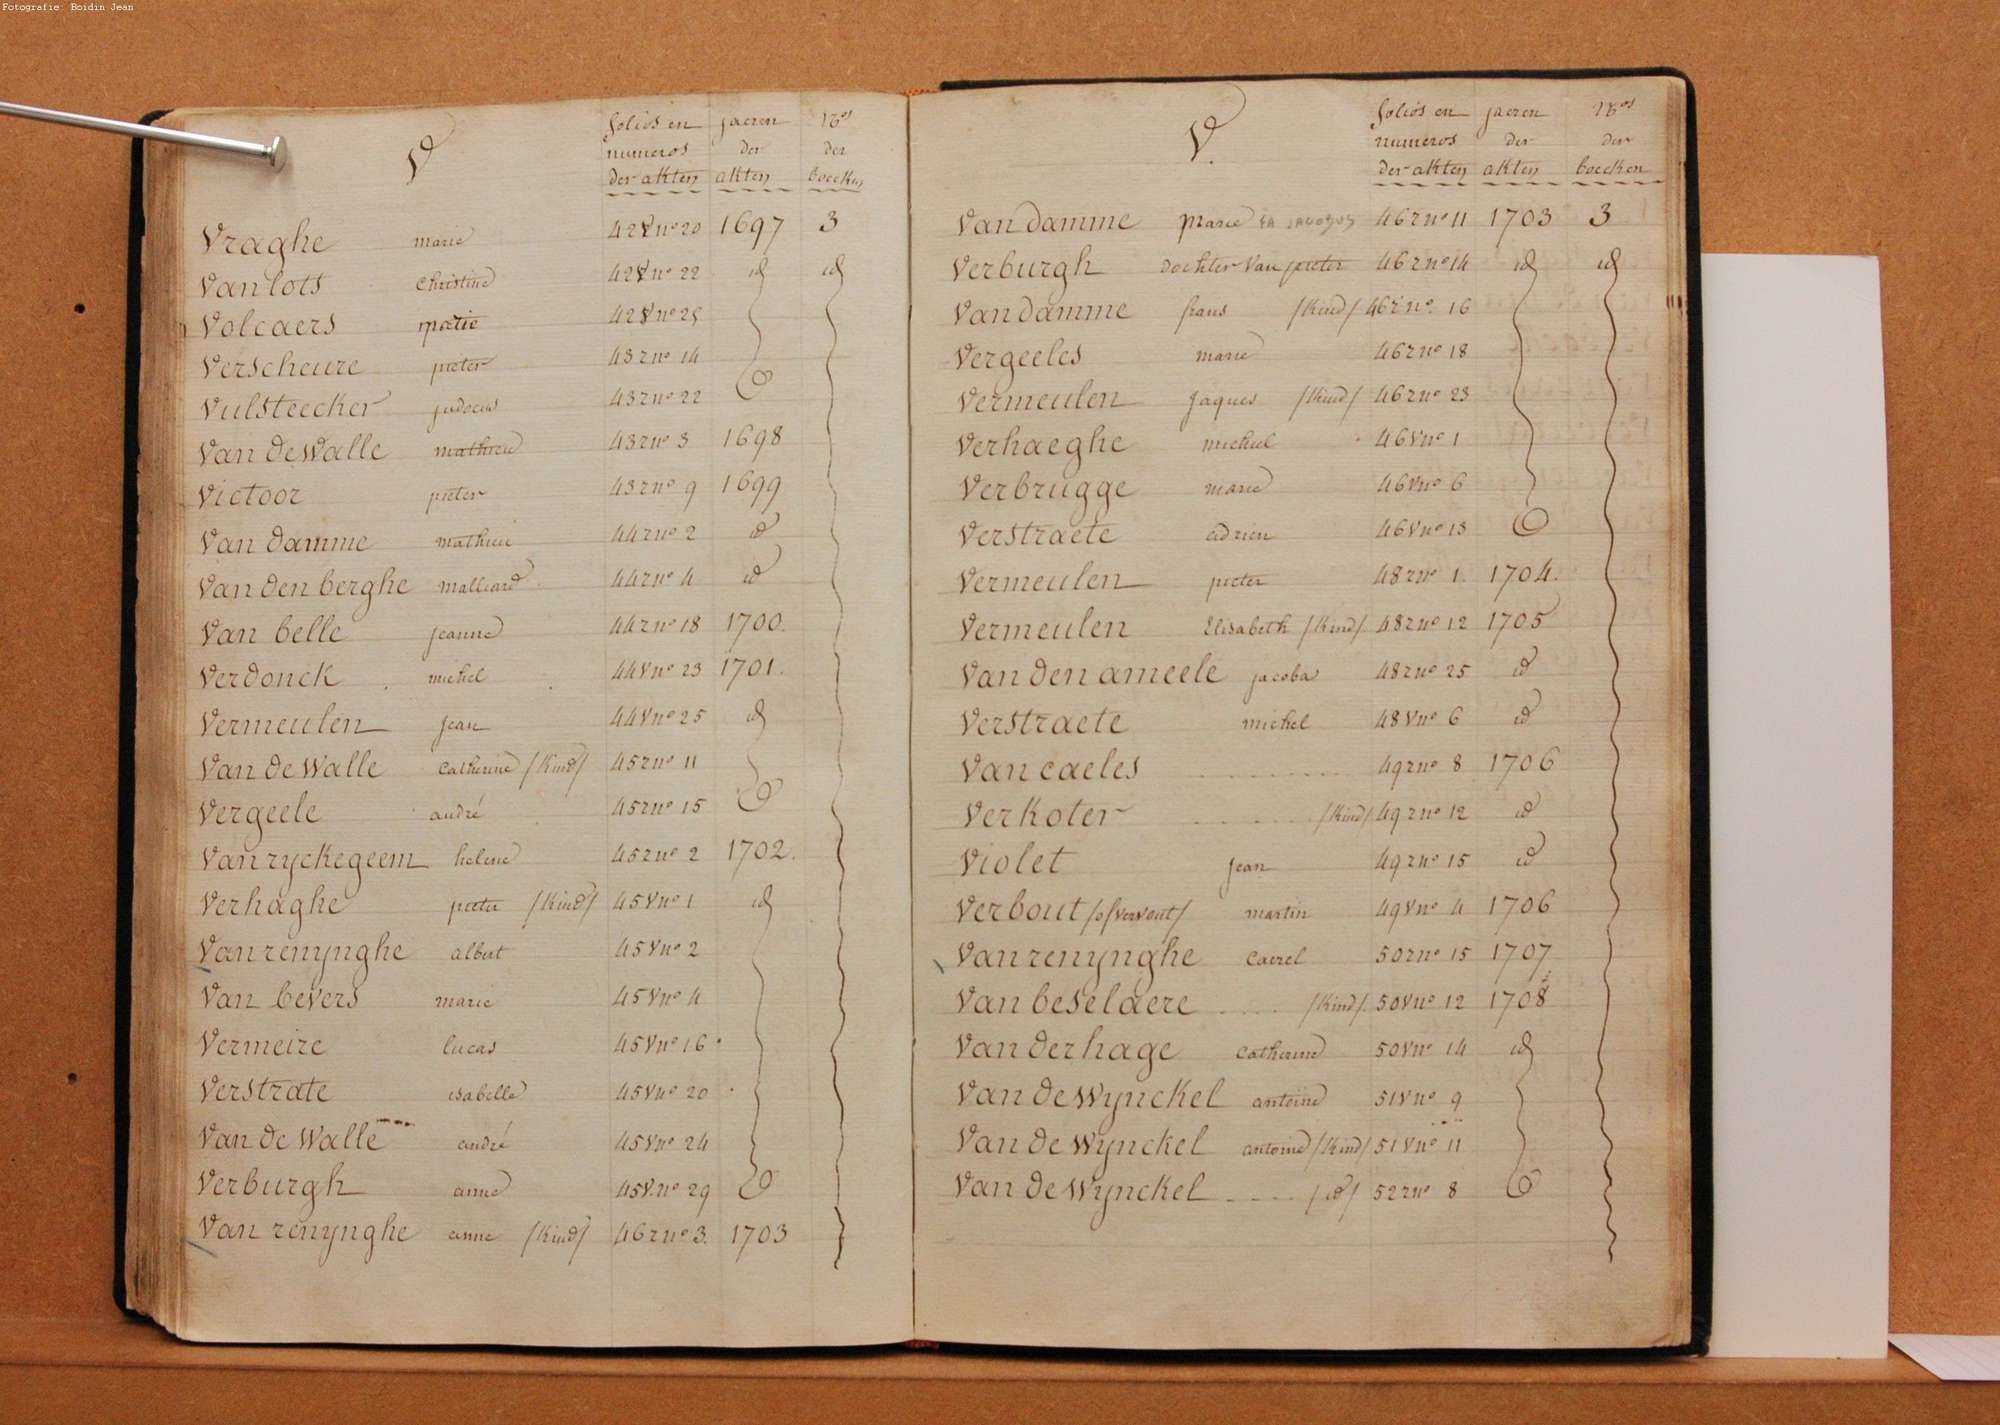 Fotografie: Boidin Jean
V
folios en jaeren nos
numeros der der
der akten akten boecken
Vraghe marie 42V no 20 1697 3
Vanlots Christine 42V no 22 id id
Volcaers 42V no 25
Verscheure pieter 43r no 14
Vulsteecker judocus 43r no 22
Van de Walle mathieu 43r no 3 1698
Victoor pieter 43r no 9 1699
Van damme mathieu 44r no 2 id
Van den berghe malliard 44r no 4 id
Van belle jeanne 44r no 18 1700.
Verdonck michel 44V no 23 1701.
Vermeulen jean 44V no 25 id
Van de Walle catherine /Kind/ 45r no 11
Vergeele andré 45r no 15
Van ryckegeem helene 45r no 2 1702.
Verhaghe pieter /Kind/ 45V no 1 id
Van renynghe albert 45V no 2
Van bevers marie 45V no 4
Vermeire lucas 45V no 16
Verstrate isabelle 45V no 20
Van de Walle andré 45V no 24
Verburgh anne 45V no 29
Van renynghe anne /Kind/ 46r no 3. 1703
V.
folios en jaeren nos
numeros der der
der akten akten boecken
Van damme Marie 46r no 11 1703 3
Verburgh dochter Van pieter 46r no 14 id id
Van damme frans /Kind/ 46r no 16
Vergeeles marie 46r no 18
Vermeulen Jaques /Kind/ 46r no 23
Verhaeghe michiel 46V no 1
Verbrugge marie 46V no 6
Verstraete adrien 46V no 13
Vermeulen pieter 48r no 1. 1704.
Vermeulen Elisabeth /Kind/ 48r no 12 1705
Van den ameele jacoba 48r no 25 id
Verstraete michel 48V no 6 id
Van caeles .......... 49r no 8 1706
Verkoter ....... /Kind/ 49r no 12 id
Violet jean 49r no 15 id
Verbout /of vervout/ martin 49V no 4 1706
Van renynghe carel 50r no 15 1707
Van beselaere .... /Kind/. 50V no 12 1708
Van der hage catherine 50V no 14 id
Van de Wynckel antoine 51V no 9
Van de Wynckel antoine /Kind/ 51V no 11
Van de Wynckel ..... /id/ 52r no 8